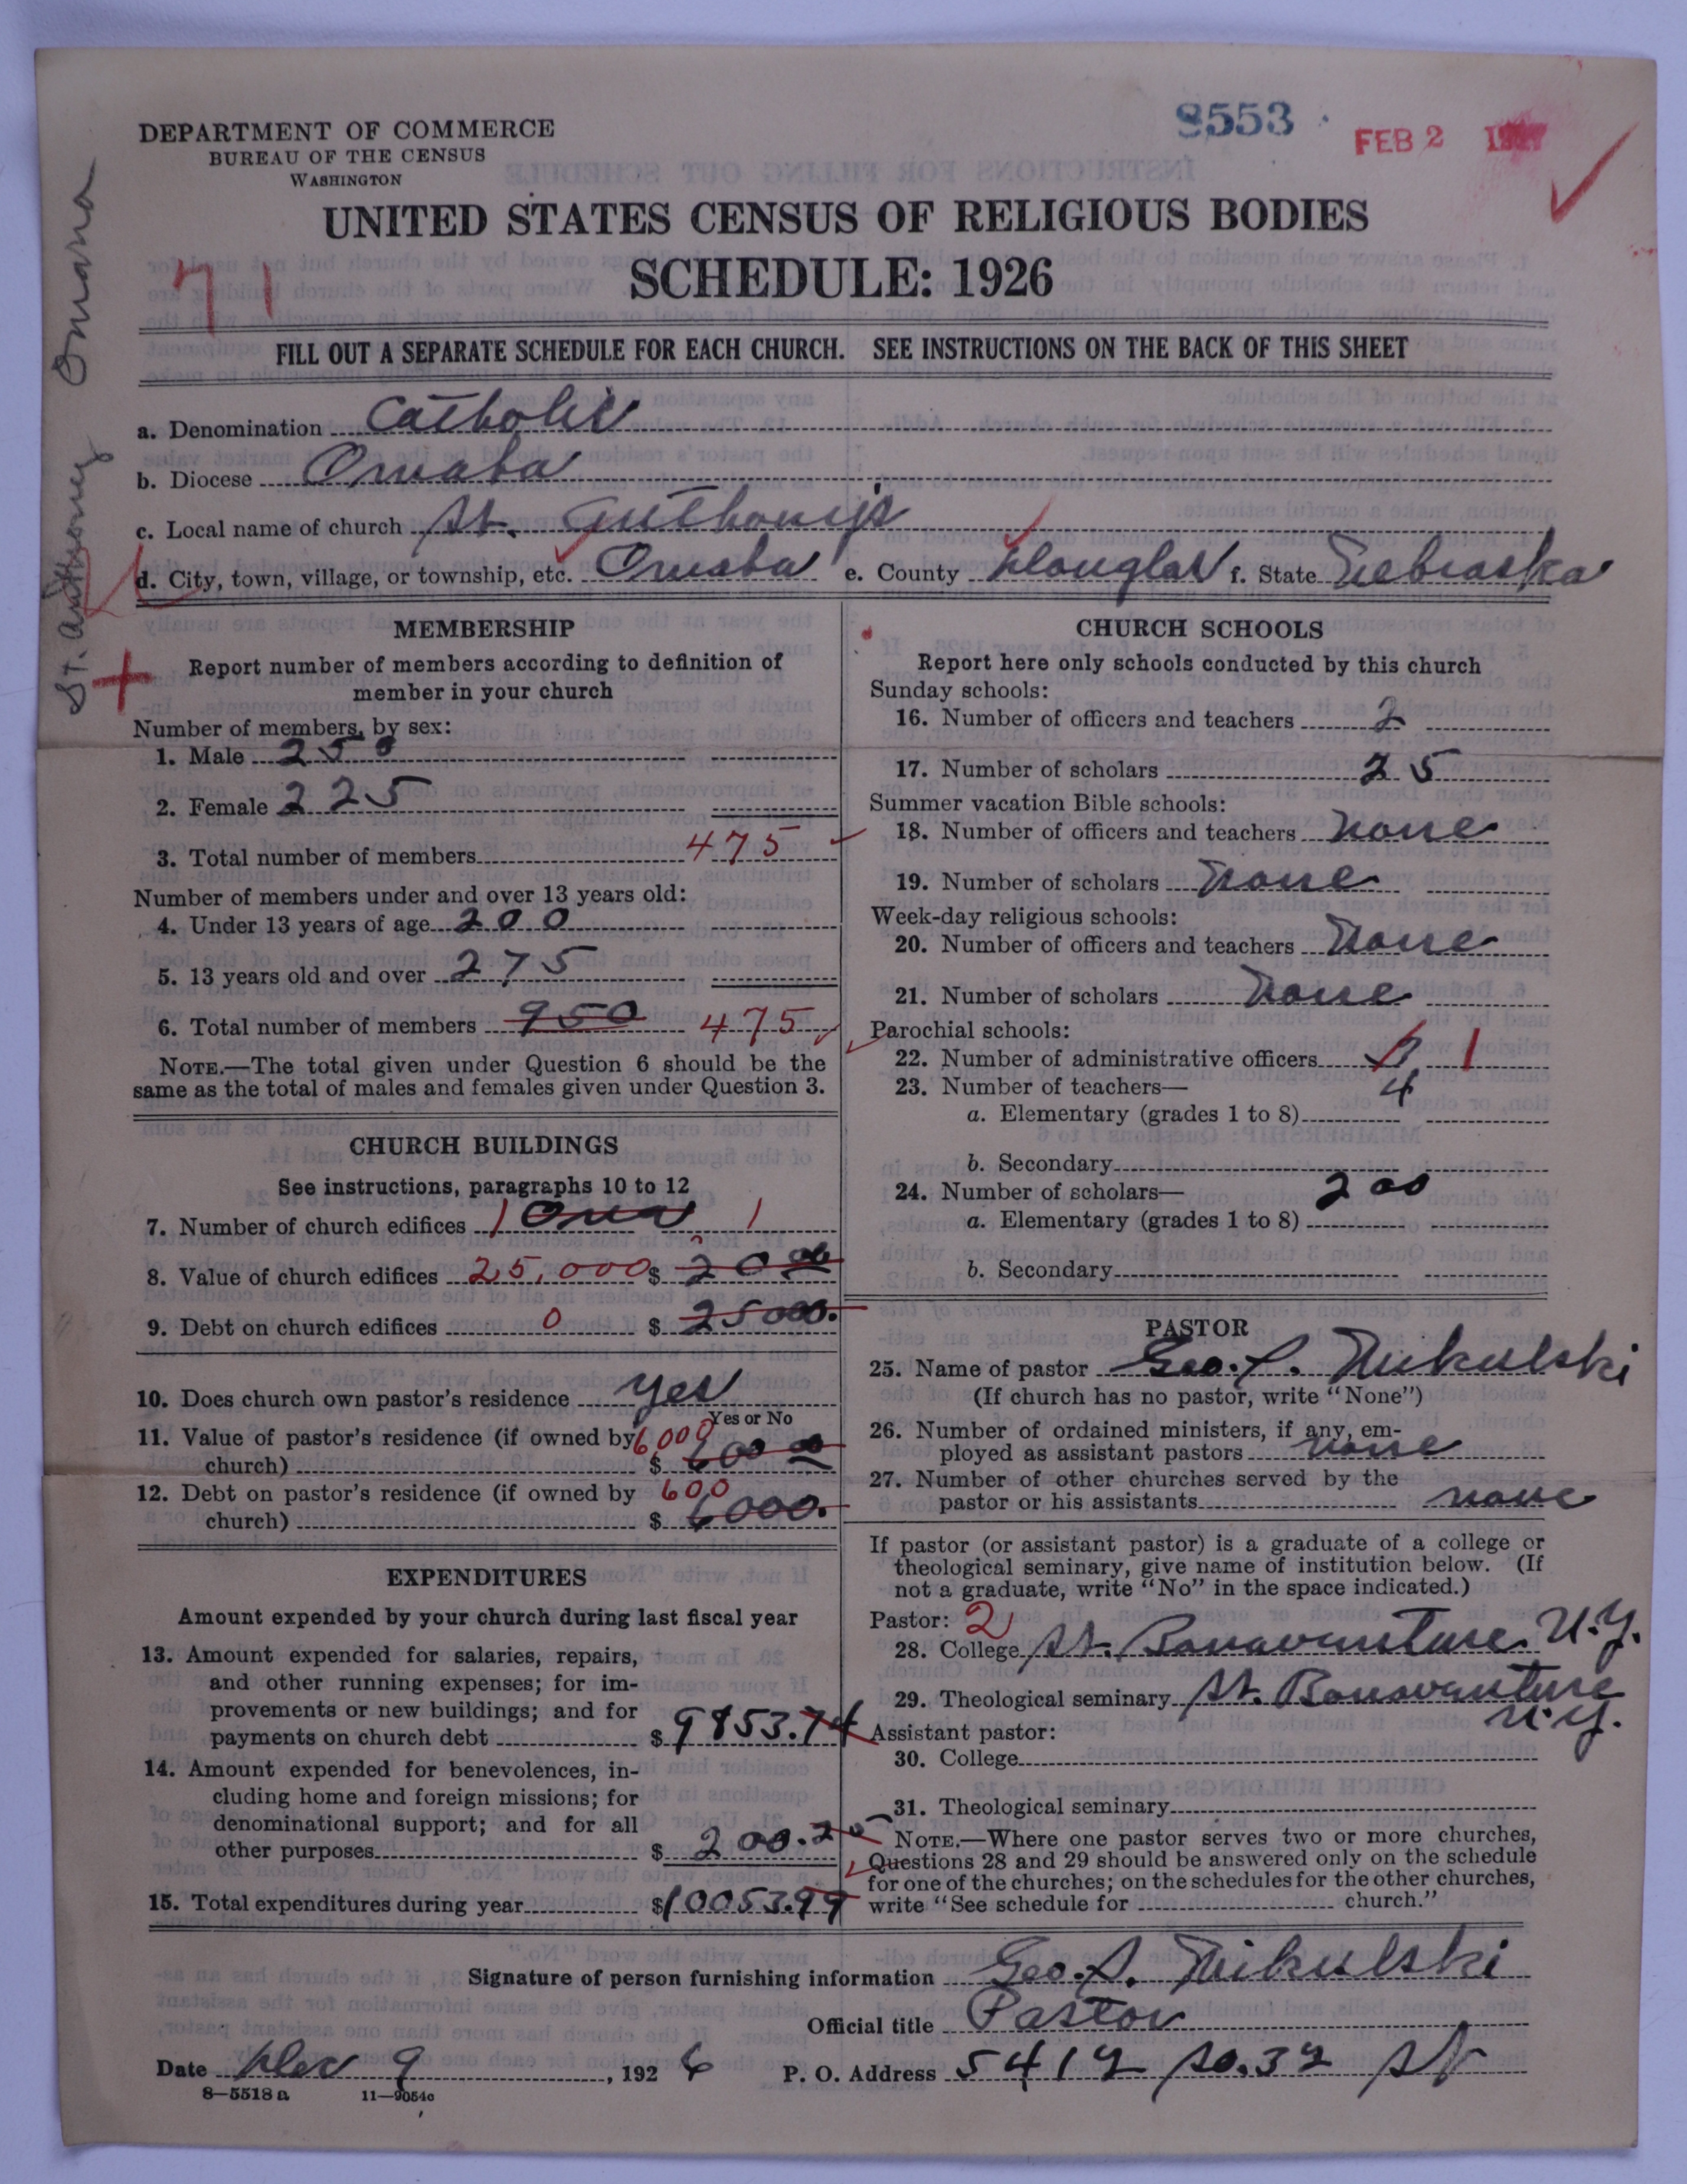 8553
FEB 2 1927
DEPARTMENT OF COMMERCE
BUREAU OF THE CENSUS
WASHINGTON
UNITED STATES CENSUS OF RELIGIOUS BODIES
SCHEDULE: 1926
71
St. Anthony Omaha
FILL OUT A SEPARATE SCHEDULE FOR EACH CHURCH. SEE INSTRUCTIONS ON THE BACK OF THIS SHEET
a. Denomination Catholic
b. Diocese Omaha
c. Local name of church St. Anthony's
d. City, town, village, or township, etc. Omaha e. County Douglas f. State Nebraska
MEMBERSHIP
Report number of members according to definition of
member in your church
Number of members, by sex:
1. Male 250
2. Female 225
3. Total number of members 475
Number of members under and over 13 years old:
4. Under 13 years of age 200
5. 13 years old and over 275
6. Total number of members 950 475
NOTE.—The total given under Question 6 should be the
same as the total of males and females given under Question 3.
CHURCH BUILDINGS
See instructions, paragraphs 10 to 12
7. Number of church edifices 1 One 1
8. Value of church edifices 25,000 $ 20 00
9. Debt on church edifices 0 $ 25000.
10. Does church own pastor's residence yes
Yes or No
11. Value of pastor's residence (if owned by 6000
church) $ 600 00
12. Debt on pastor's residence (if owned by 600
church) $ 6000.
EXPENDITURES
Amount expended by your church during last fiscal year
13. Amount expended for salaries, repairs,
and other running expenses; for im-
provements or new buildings; and for
payments on church debt $ 9853.74
14. Amount expended for benevolences, in-
cluding home and foreign missions; for
denominational support; and for all
other purposes $ 200.25
15. Total expenditures during year $10053.99
CHURCH SCHOOLS
Report here only schools conducted by this church
Sunday schools:
16. Number of officers and teachers 2
17. Number of scholars 25
Summer vacation Bible schools:
18. Number of officers and teachers None
19. Number of scholars None
Week-day religious schools:
20. Number of officers and teachers None
21. Number of scholars None
Parochial schools:
22. Number of administrative officers 1
23. Number of teachers— 4
a. Elementary (grades 1 to 8)
b. Secondary
24. Number of scholars— 200
a. Elementary (grades 1 to 8)
b. Secondary
PASTOR
25. Name of pastor Geo. S. Mikulski
(If church has no pastor, write "None")
26. Number of ordained ministers, if any, em-
ployed as assistant pastors none
27. Number of other churches served by the
pastor or his assistants none
If pastor (or assistant pastor) is a graduate of a college or
theological seminary, give name of institution below. (If
not a graduate, write "No" in the space indicated.)
Pastor: 2
28. College St. Bonaventure. N.Y.
29. Theological seminary St. Bonaventure
N.Y.
Assistant pastor:
30. College
31. Theological seminary
NOTE.—Where one pastor serves two or more churches,
Questions 28 and 29 should be answered only on the schedule
for one of the churches; on the schedules for the other churches,
write "See schedule for church."
Signature of person furnishing information Geo. S. Mikulski
Official title Pastor
Date Dec 9, 1926 P. O. Address 5412 So. 32 St
8—5518a 11—9054c